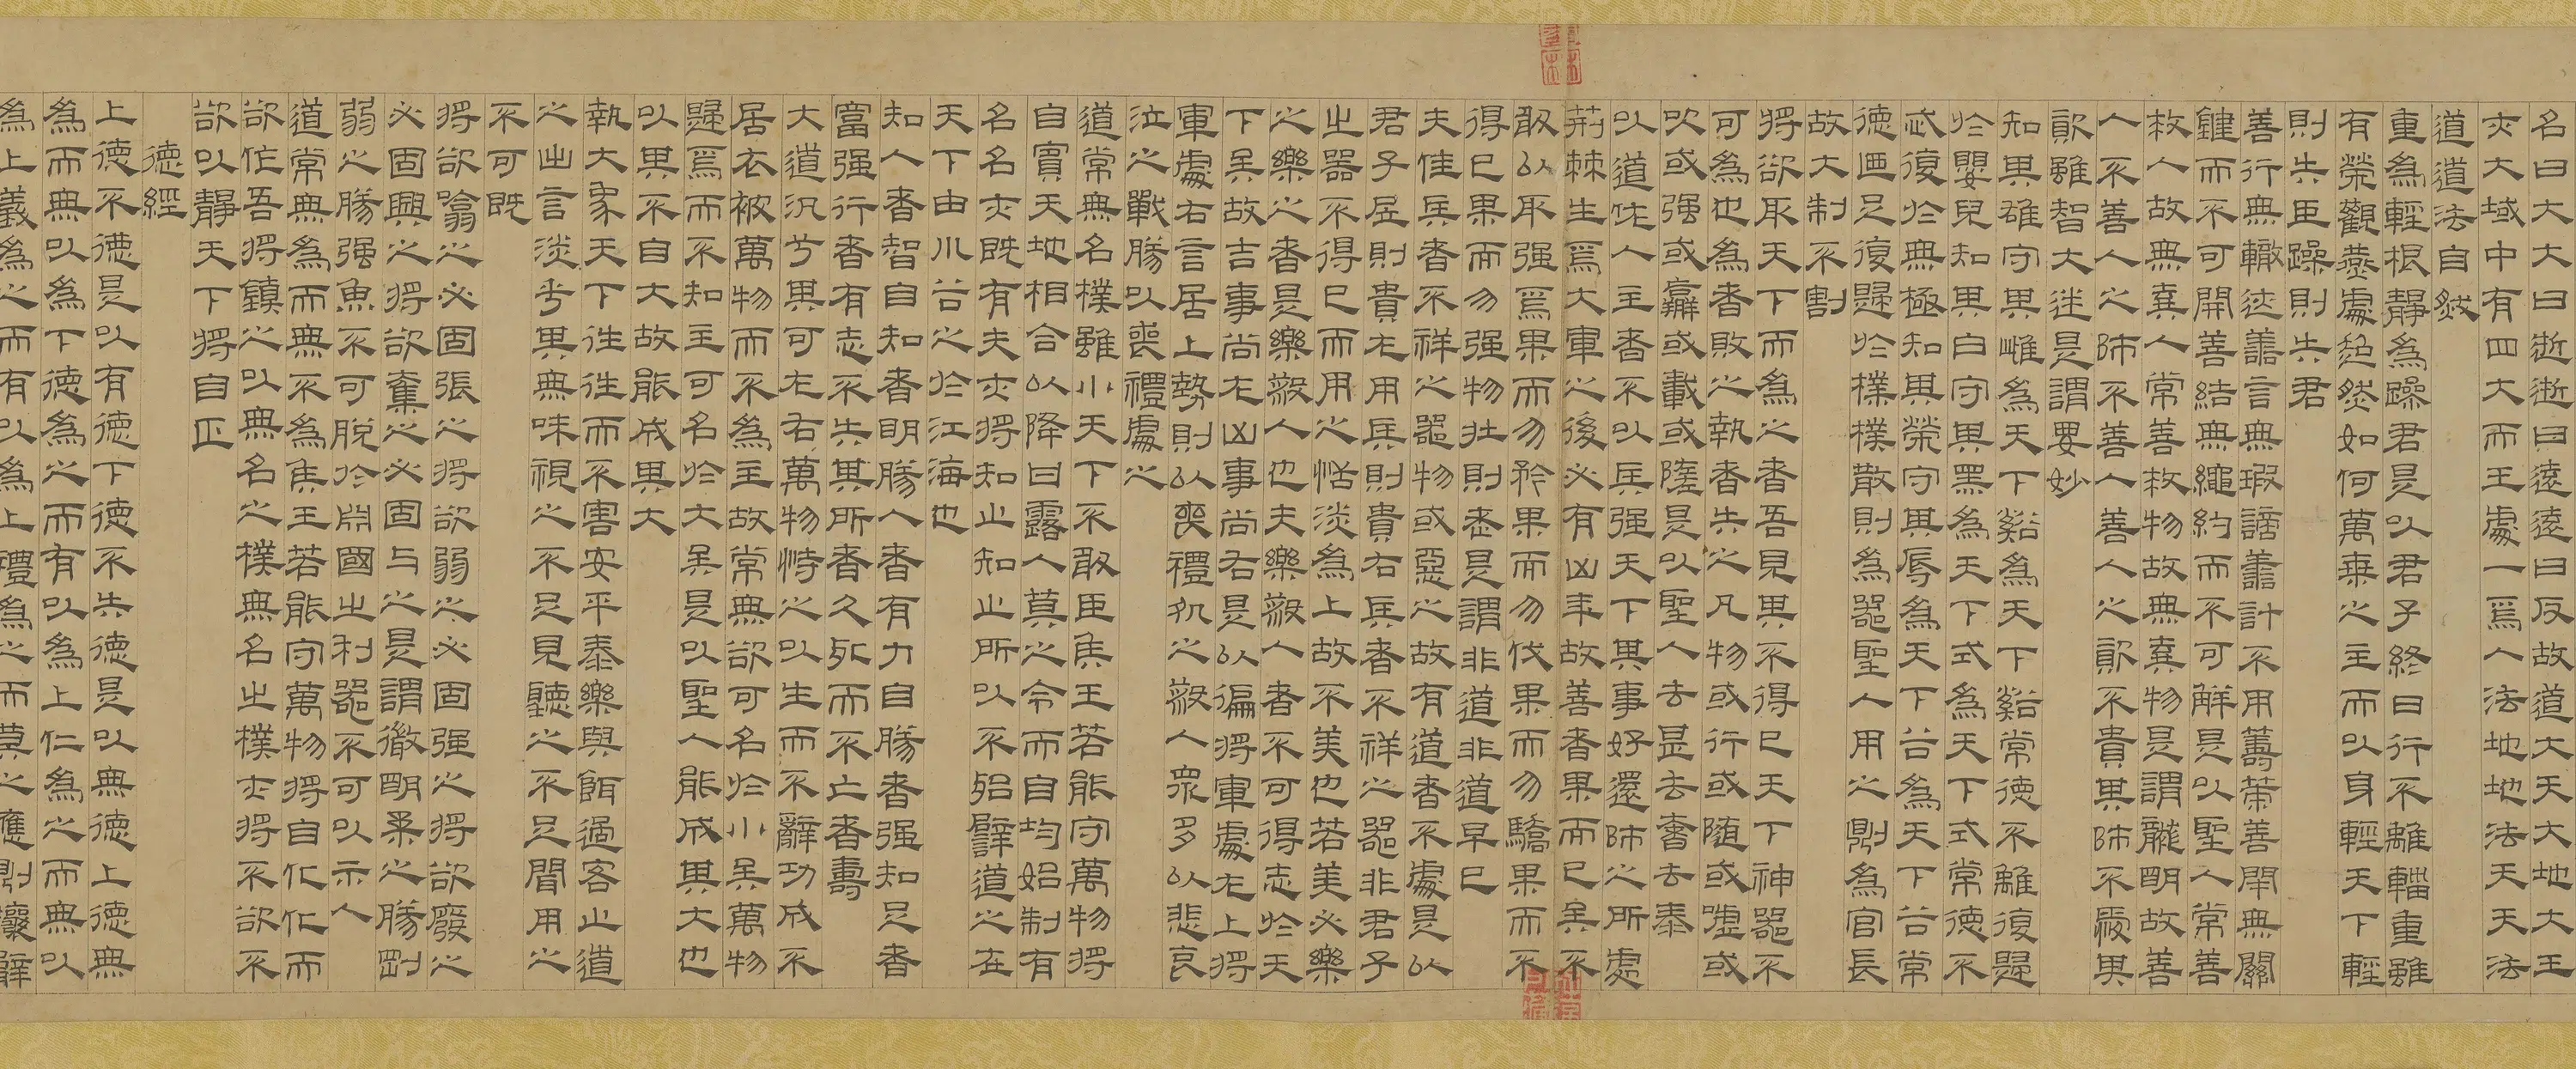 名曰大大曰逝逝曰遠遠曰反故道大天大地大王
亦大域中有四大而王處一焉人法地地法天天法
道道法自然
重為輕根靜為躁君是以君子終日行不離輜重雖
有榮觀燕處超然如何萬乘之主而以身輕天下輕
則失臣躁則失君
善行無轍迹善言無瑕謫善計不用籌策善閉無關
鍵而不可開善結無繩約而不可解是以聖人常善
救人故無棄人常善救物故無棄物是謂襲明故善
人不善人之師不善人善人之資不貴其師不愛其
資雖智大迷是謂要妙
知其雄守其雌為天下谿為天下谿常德不離復歸
於嬰兒知其白守其黑為天下式為天下式常德不
忒復於無極知其榮守其辱為天下谷為天下谷常
德迺足復歸於樸樸散則為器聖人用之則為官長
故大制不割
將欲取天下而為之者吾見其不得已天下神器不
可為也為者敗之執者失之凡物或行或隨或噓或
吹或强或羸或載或隳是以聖人去甚去奢去泰
以道佐人主者不以兵强天下其事好還師之所處
荊棘生焉大軍之後必有凶年故善者果而已矣不
敢以取强焉果而勿矜果而勿伐果而勿驕果而不
得已果而勿强物壯則老是謂非道非道早已
夫佳兵者不祥之器物或惡之故有道者不處是以
君子居則貴左用兵則貴右兵者不祥之器非君子
之器不得已而用之恬淡為上故不美也若美必樂
之樂之者是樂殺人也夫樂殺人者不可得志於天
下矣故吉事尚左凶事尚右是以偏將軍處左上將
軍處右言居上勢則以喪禮処之殺人眾多以悲哀
泣之戰勝以喪禮處之
道常無名樸雖小天下不敢臣侯王若能守萬物將
自賓天地相合以降甘露人莫之令而自均始制有
名名亦既有夫亦將知止知止所以不殆譬道之在
天下由川谷之於江海也
知人者智自知者明勝人者有力自勝者强知足者
富强行者有志不失其所者久死而不亡者壽
大道汎兮其可左右萬物恃之以生而不辭功成不
居衣被萬物而不為主故常無欲可名於小矣萬物
歸焉而不知主可名於大矣是以聖人能成其大也
以其不自大故能成其大
執大象天下往往而不害安平泰樂與餌過客止道
之出言淡兮其無味視之不足見聽之不足聞用之
不可既
將欲噏之必固張之將欲弱之必固强之將欲廢之
必固興之將欲奪之必固与之是謂微明柔之勝剛
弱之勝强魚不可脫於淵國之利器不可以示人
道常無為而無不為侯王若能守萬物將自化化而
欲作吾將鎮之以無名之樸無名之樸亦將不欲不
欲以靜天下將自正
德經
上德不德是以有德下德不失德是以無德上德無
為而無以為下德為之而有以為上仁為之而無以
為上義為之而有以為上禮為之而莫之應則攘臂